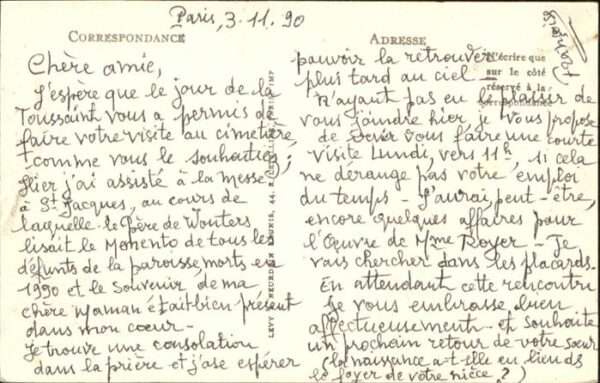 Paris, 3.11.90
CORRESPONDANCE
Chère amie,
J'espère que le jour de la
Toussaint vous a permis de
faire votre visite au cimetière,
comme vous le souhaitiez;
Hier j'ai assisté à la messe,
à St Jacques, au cours de
laquelle le Père de Wouters
lisait le Momento de tous les
défunts de la paroisse, morts en
1990 et le souvenir de ma
chère Maman était bien présent
dans mon coeur -
Je trouve une consolation
dans la prière et j'ose espérer
ADRESSE
N'écrire que
sur le côté
réservé à la
correspondance
pouvoir la retrouver
plus tard au ciel -
N'ayant pas eu le plaisir de
vous joindre hier, je vous propose
de venir vous faire une courte
visite Lundi, vers 11h, si cela
ne dérange pas votre emploi
du temps - J'aurai, peut-être,
encore quelques affaires pour
l'Œuvre de Mme Royer - Je
vais chercher dans les placards.
En attendant cette rencontre
je vous embrasse bien
affectueusement - et souhaite
un prochain retour de votre sœur
(la naissance a-t-elle eu lieu ds
le foyer de votre nièce ?)
LEVY & NEURDEIN RÉUNIS, 44, R.